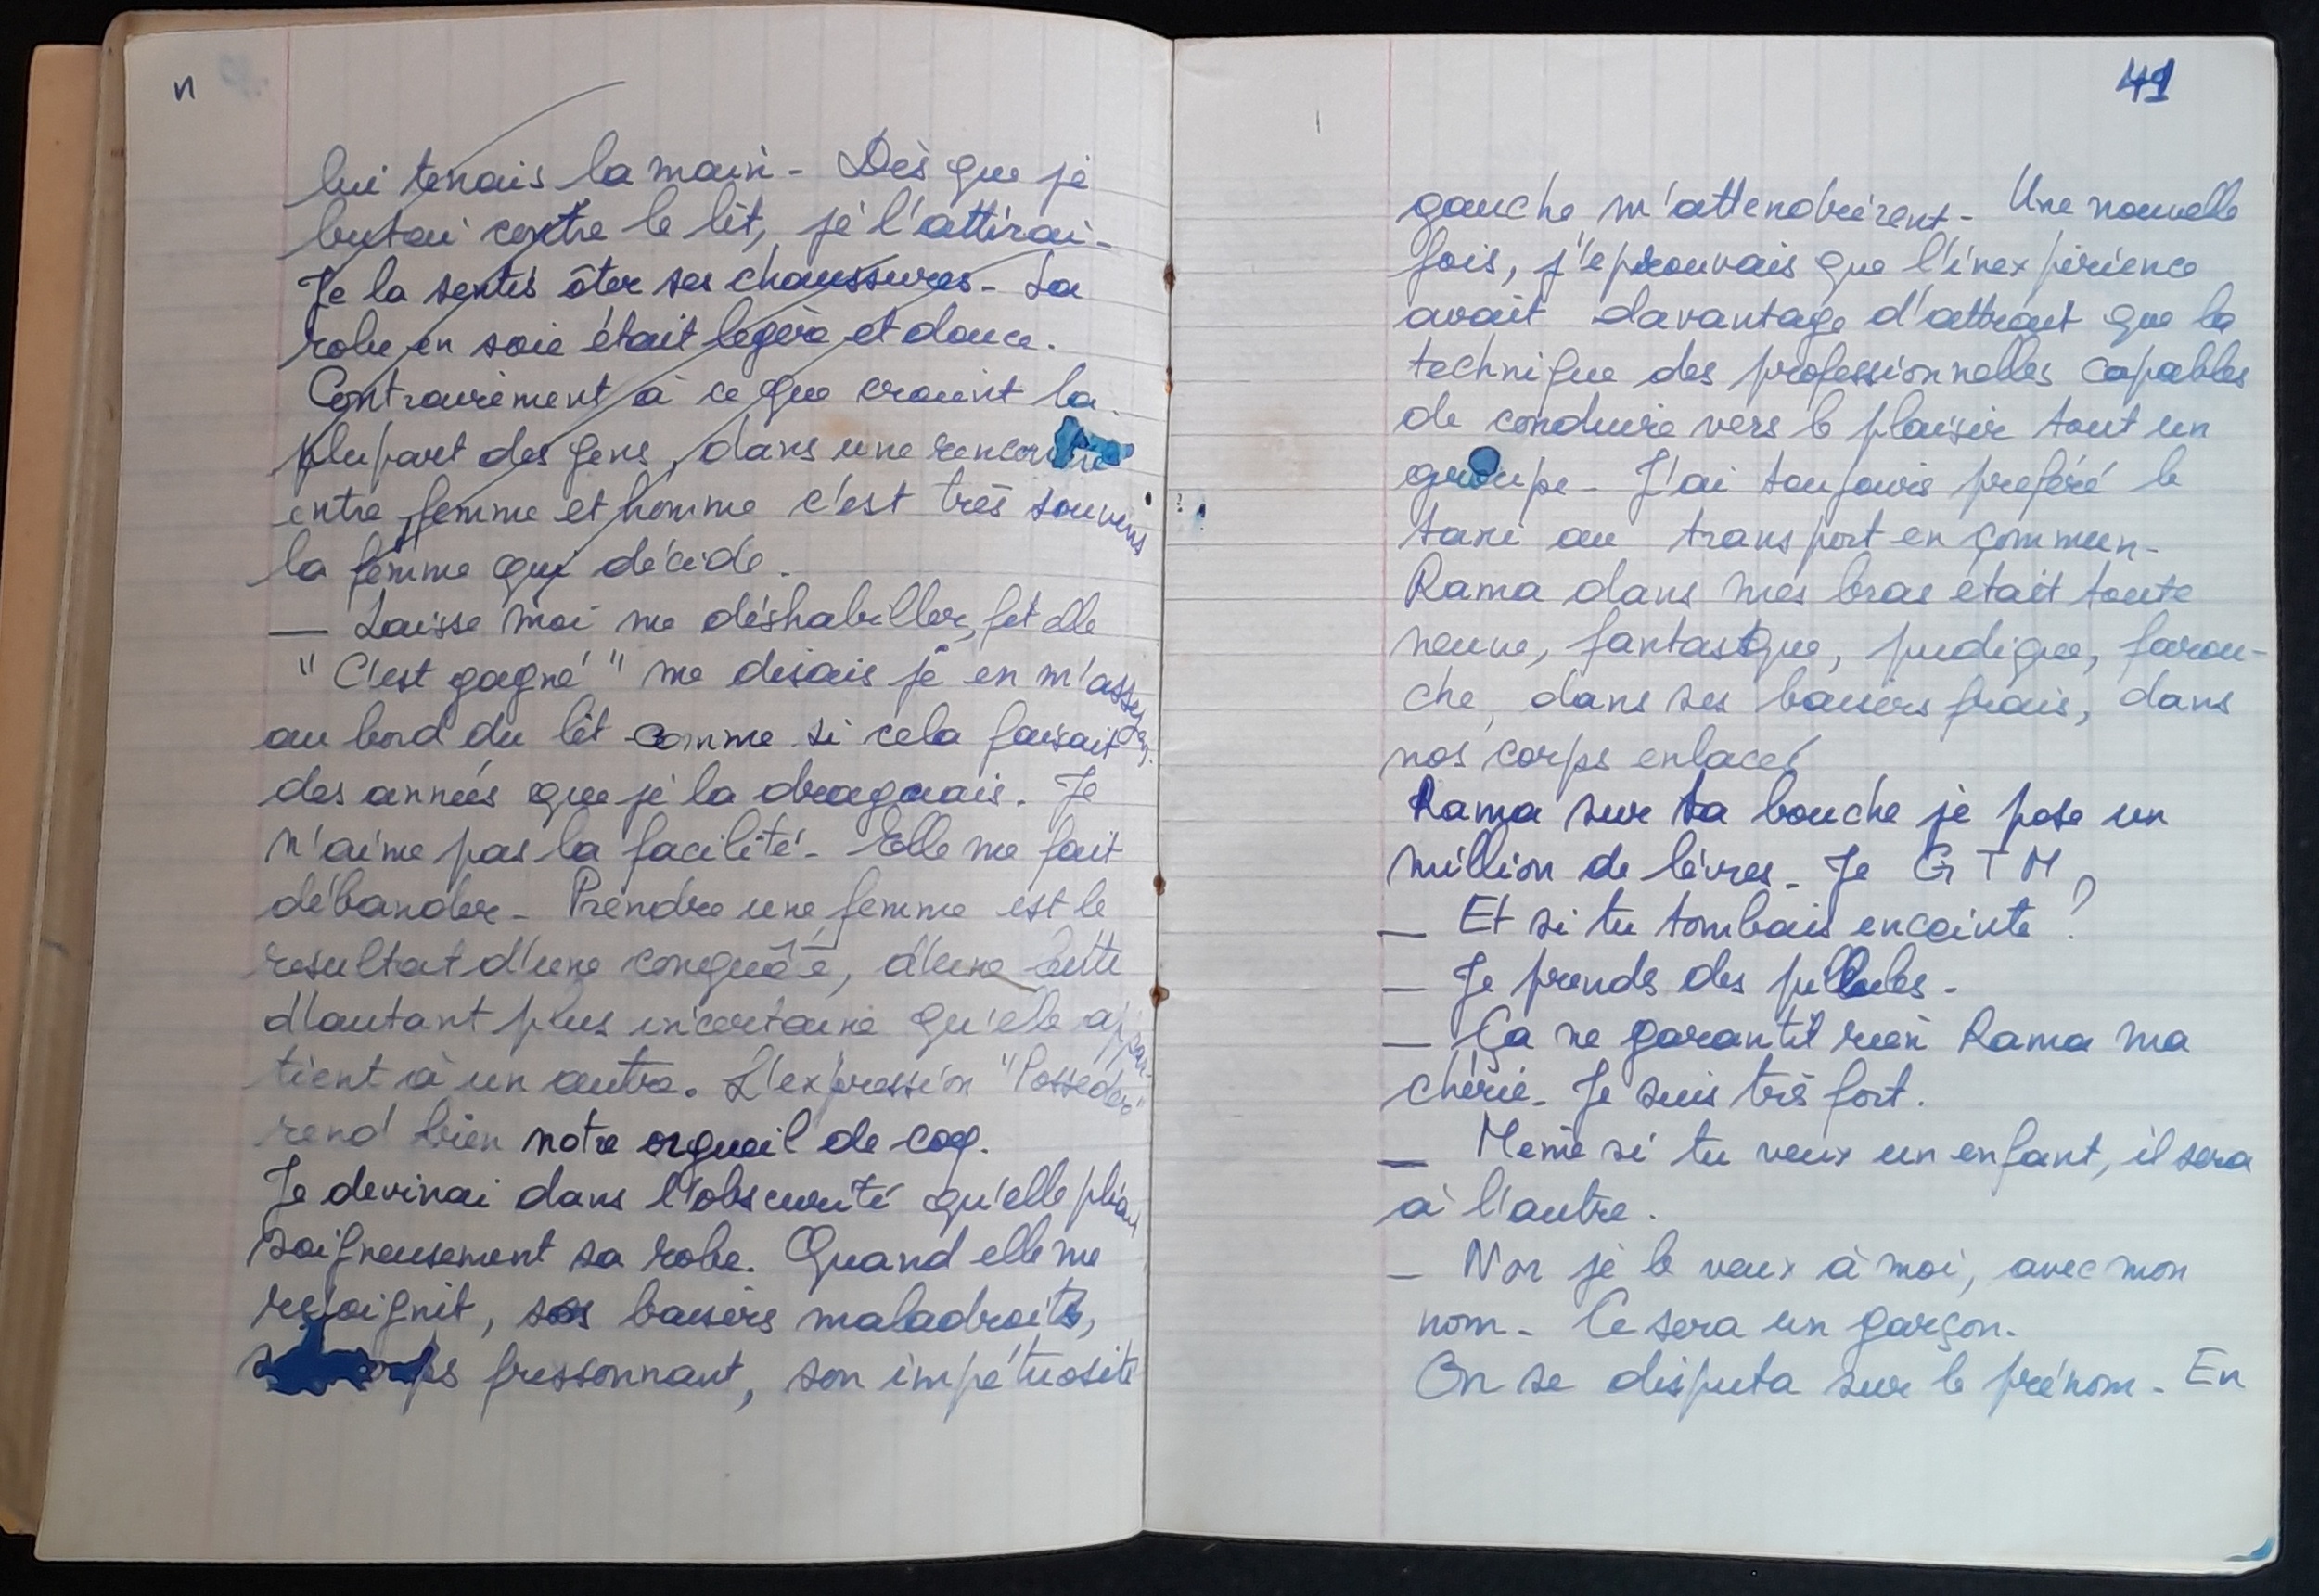 n
lui tenais la main - Dès que je
butai contre le lit, je l'attirai -
Je la sentis ôter ses chaussures - La
robe en soie était legère et douce.
Contrairement à ce que croient la
plupart des gens, dans une rencontre
entre femme et homme c'est très souvent
la femme qui décide.
— Laisse moi me déshabiller, fit elle
"C'est gagné" me disais je en m'asseyant
au bord du lit comme si cela faisait
des années que je la draguais. Je
n'aime pas la facilité - Elle me fait
débander - Prendre une femme est le
resultat d'une conquête, d'une lutte
d'autant plus incertaine qu'elle appar-
tient à un autre. L'expression "Posseder"
rend bien notre orgueil de coq.
Je devinai dans l'obscurité qu'elle pliait
soigneusement sa robe. Quand elle me
rejoignit, ses baisers maladroits,
frissonnant, son impétuosité
41
gauche m'attendrirent - Une nouvelle
fois, j'eprouvais que l'inexpérience
avait davantage d'attrait que la
technique des professionnelles capables
de conduire vers le plaisir tout un
groupe - J'ai toujours préféré le
taxi au transport en commun -
Rama dans mes bras etait toute
neuve, fantasque, pudique, farou-
che, dans ses baisers frais, dans
nos corps enlacés
Rama sur ta bouche je pose un
million de lèvres - Je G T M
— Et si tu tombais enceinte ?
— Je prends des pillules -
— Ça ne garantit rien Rama ma
chérie - Je suis très fort.
— Meme si tu veux un enfant, il sera
à l'autre.
— Non je le veux à moi, avec mon
nom - Ce sera un garçon.
On se disputa sur le prénom - En